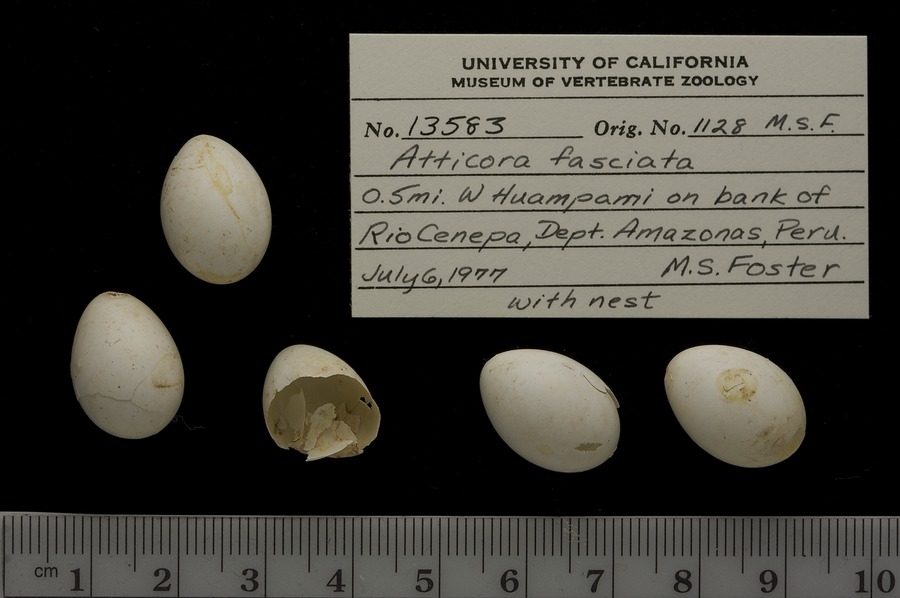 UNIVERSITY OF CALIFORNIA
MUSEUM OF VERTEBRATE ZOOLOGY
No. 13583 Orig. No. 1128 M.S.F.
Atticora fasciata
0.5mi. W Huampami on bank of
Rio Cenepa, Dept. Amazonas, Peru.
July 6, 1977 M.S. Foster
with nest
cm 1 2 3 4 5 6 7 8 9 10